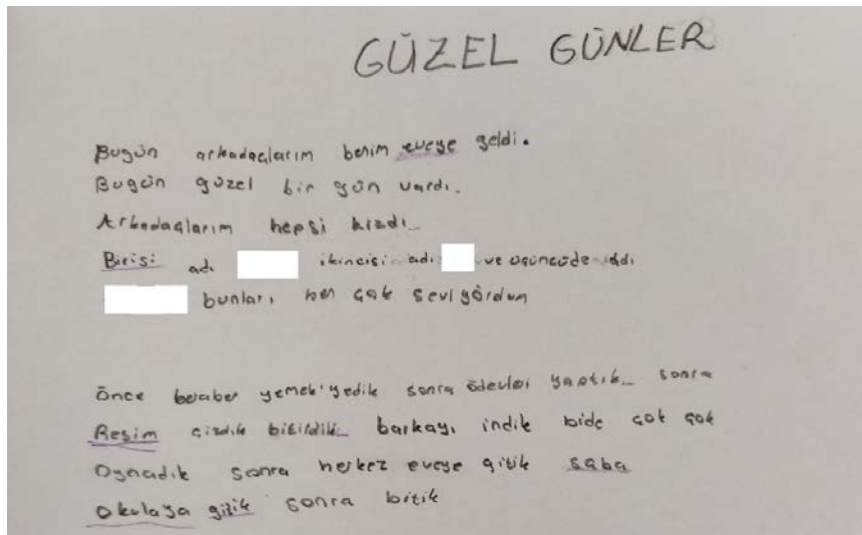 GÜZEL GÜNLER
Bugün arkadaçlarım benim eveye geldi.
Bugün güzel bir gün vardı.
Arkadaçlarım hepsi kızdı
Birisi adı ikincisi adı ve üçüncüde addı
bunları ben çok seviyördum
Önce beraber yemek'yedik sonra ödevleri yaptık sonra
Resim çizdik bitildik barkayı indik bide çok çok
Oynadık sonra herkez eveye gitik saba
Okulaya gitik sonra bitik